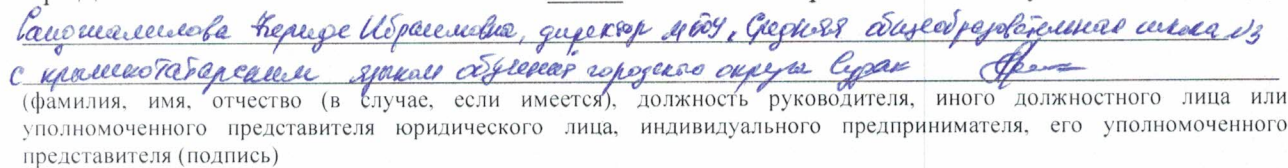 Саидхалилова Фериде Ибраимовна, директор МБОУ "Средняя общеобразовательная школа №3
с крымскотатарским языком обучения" городского округа Судак
(фамилия, имя, отчество (в случае, если имеется), должность руководителя, иного должностного лица или
уполномоченного представителя юридического лица, индивидуального предпринимателя, его уполномоченного
представителя (подпись)